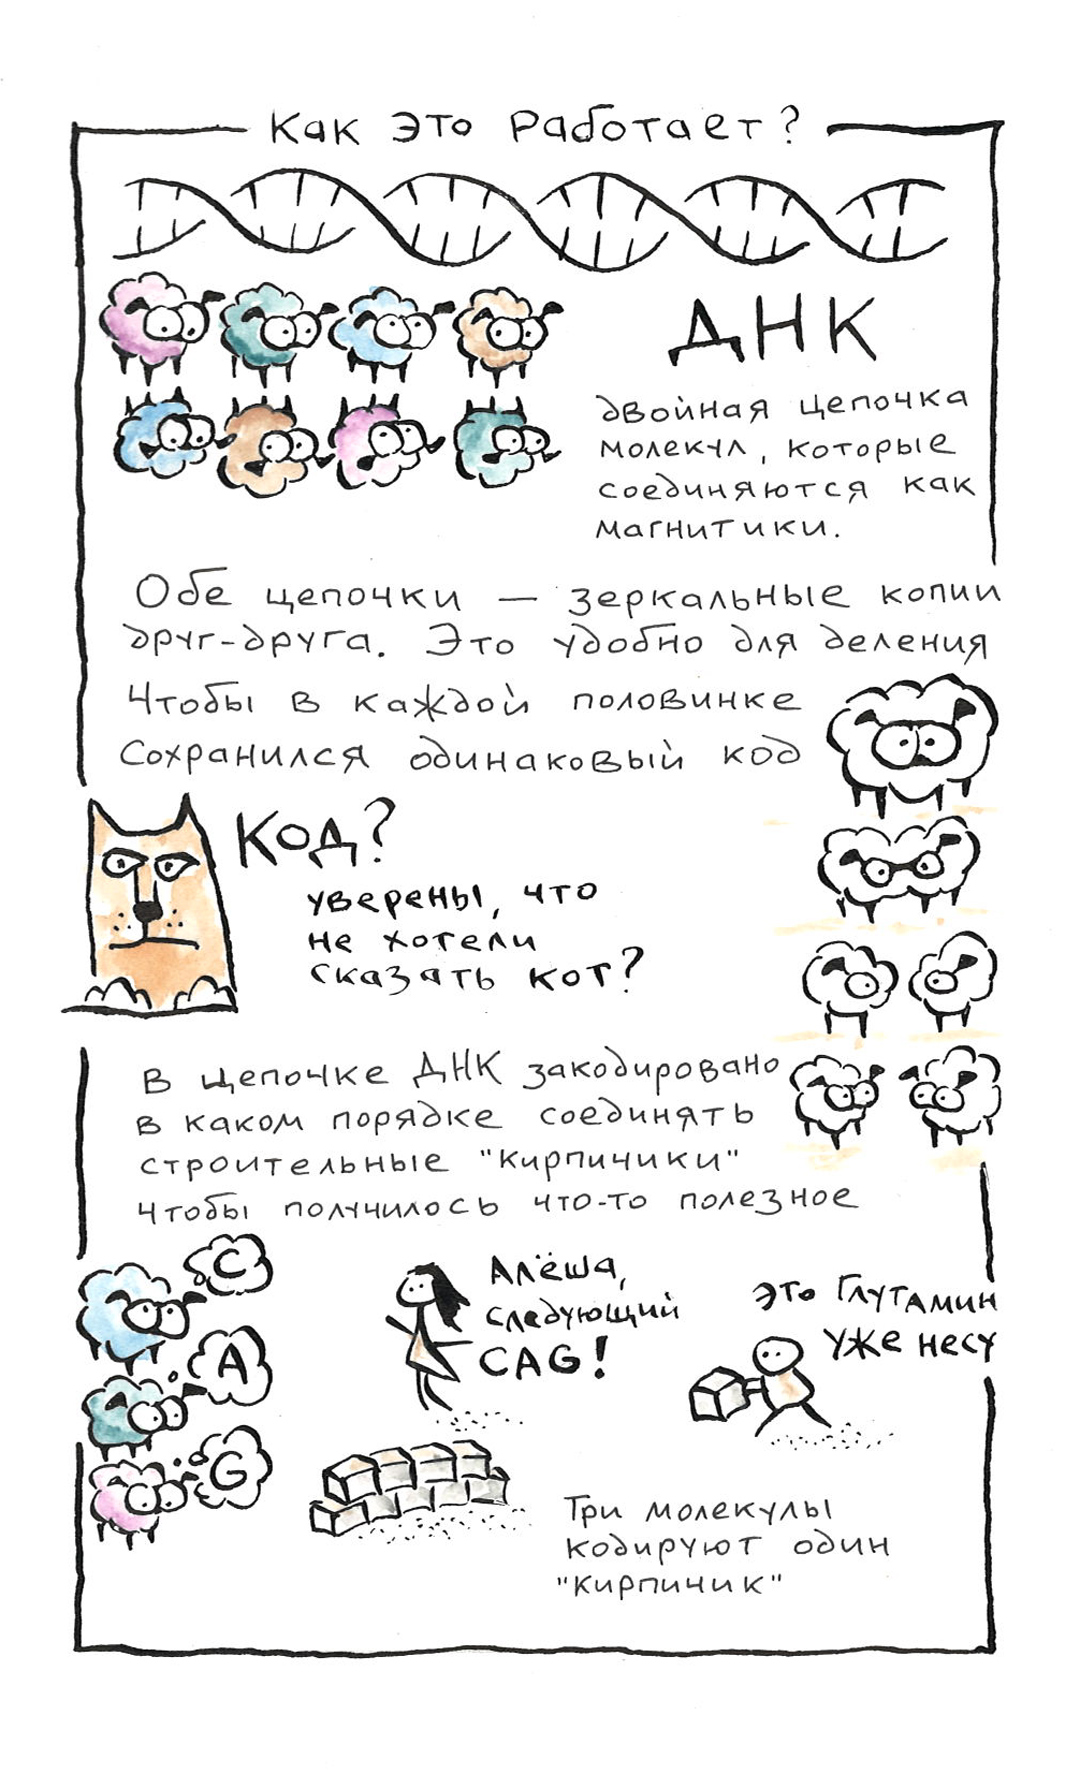 Как это работает?
ДНК
двойная цепочка
молекул, которые
соединяются как
магнитики.
Обе цепочки — зеркальные копии
друг-друга. Это удобно для деления
Чтобы в каждой половинке
сохранился одинаковый код
Код?
уверены, что
не хотели
сказать кот?
В цепочке ДНК закодировано
в каком порядке соединять
строительные "кирпичики"
чтобы получилось что-то полезное
C
A
G
Алёша,
следующий
CAG!
Это Глутамин
уже несу
Три молекулы
кодируют один
"кирпичик"